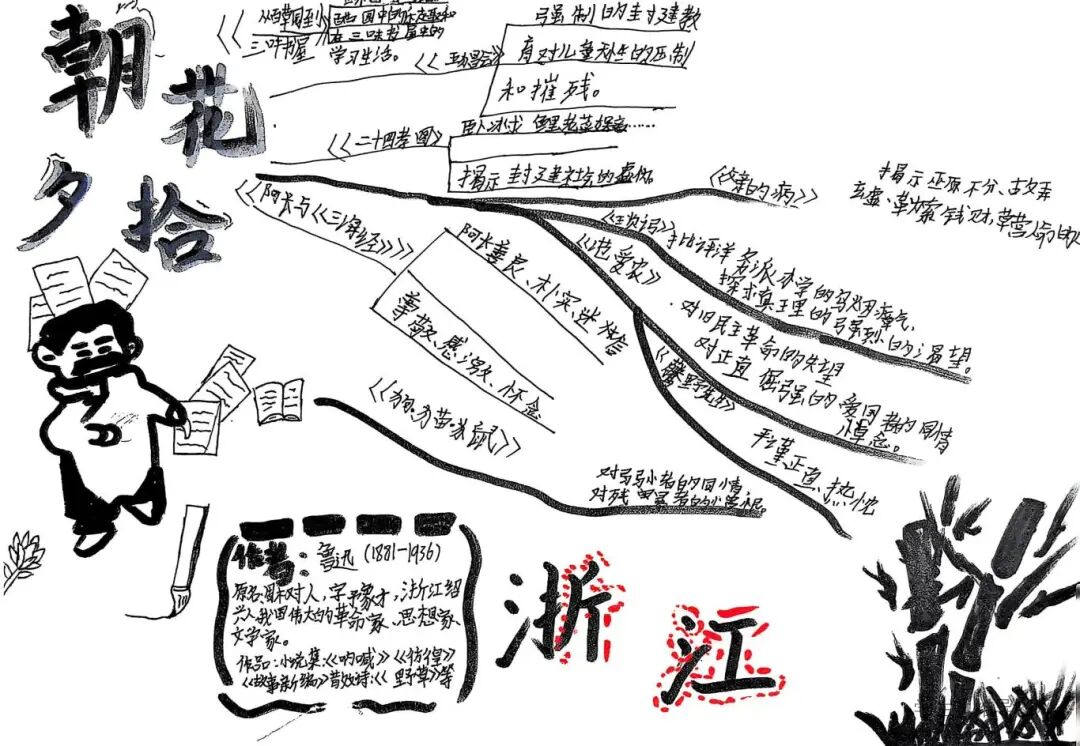 朝花
夕拾
《从百草园到
三味书屋
学习生活。
《五猖会》
强制的封建教
育对儿童天性的压制
和摧残。
《二十四孝图》
卧冰求
揭示封建社会的虚伪
《父亲的病》
揭示巫医不分、故弄
玄虚、草菅人命的
《阿长与《三海经》》
阿长善良、朴实、迷信
尊敬、感激、怀念
《琐记》批评洋务派办学的乌烟瘴气,
探求真理的强烈的渴望。
《范爱农》
对旧民主革命的失望
对正直倔强的爱国者的同情
悼念。
《藤野先生》
严谨、正直、热忱
《狗·猫·鼠》
对弱小者的同情
对残
作者:鲁迅(1881-1936)
原名周树人,字豫才,浙江绍
兴人,我国伟大的革命家、思想家、
文学家。
作品:小说集:《呐喊》《彷徨》
《故事新编》散文诗:《野草》等
浙
江